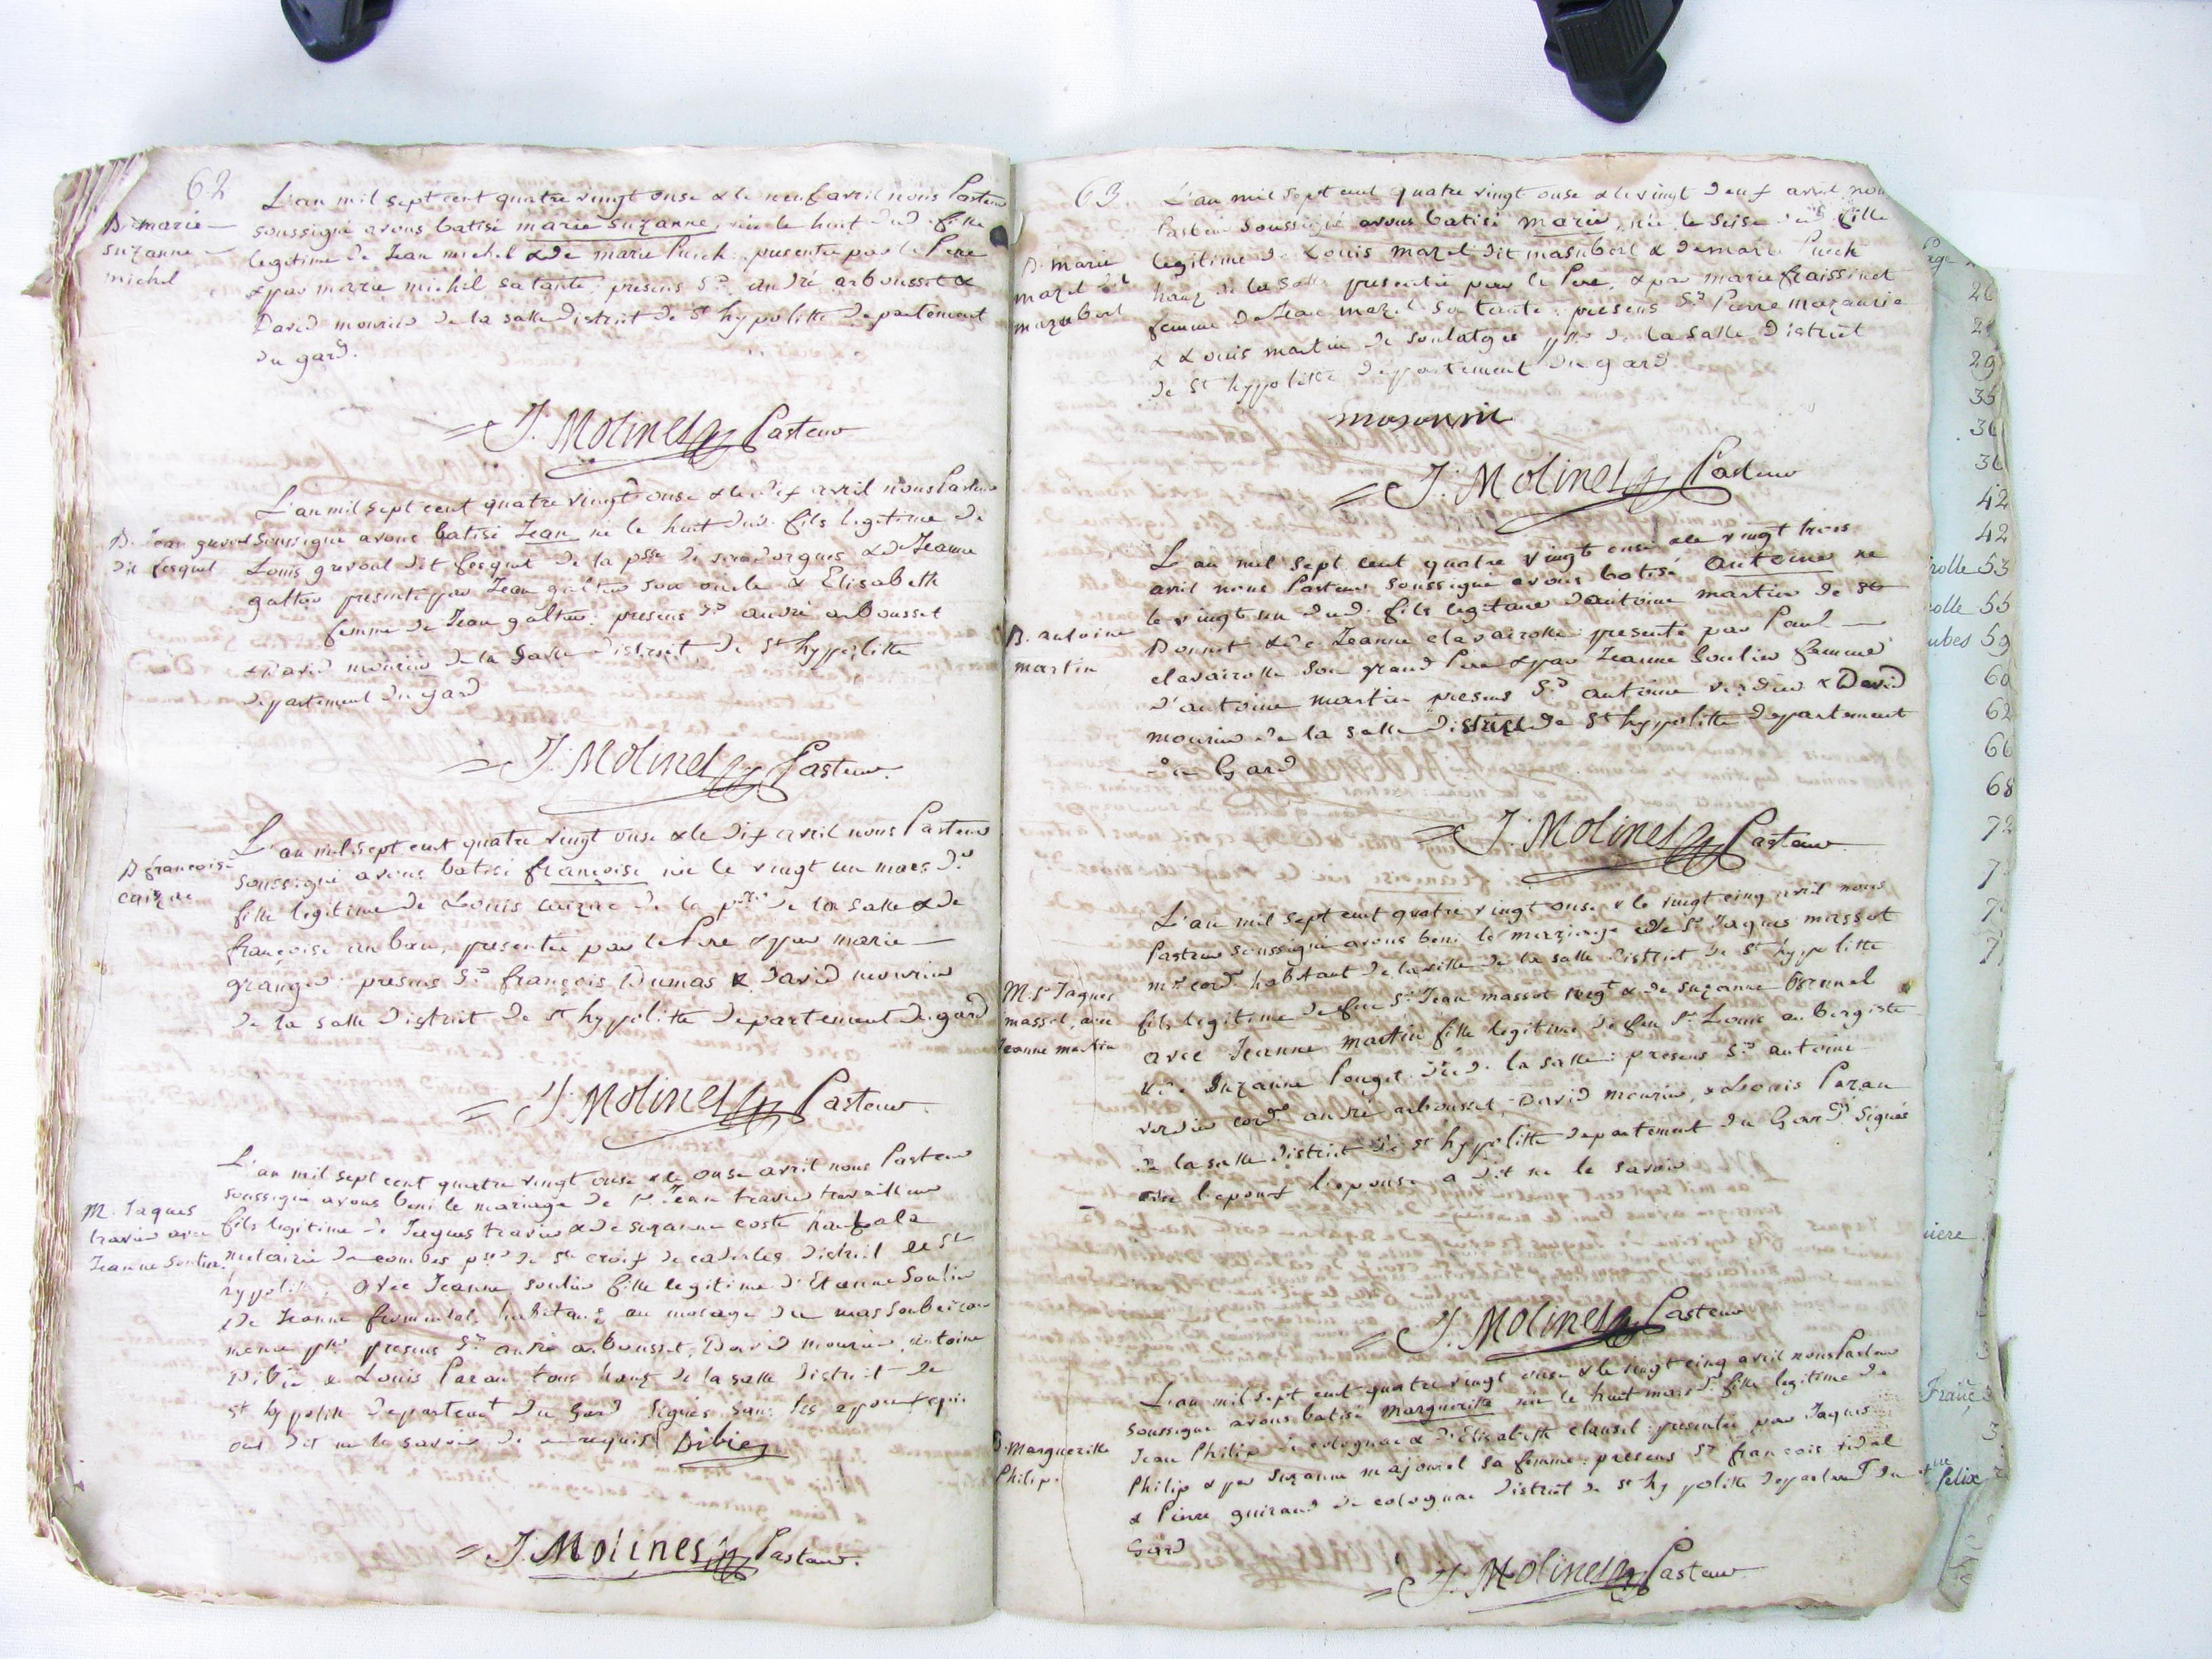 62
B. marie
suzanne
michel
L'an mil sept cent quatre vingt onse & le neuf avril nous Pasteur
soussigné avons batisé marie suzanne, née le huit dud. fille
legitime de Jean michel & de marie Puech presentée par le Pere
& par marie michel sa tante; presens Srs andré arbousset &
David mourier de la salle District de St hypolitte Departement
du gard.
J. Molines Pasteur
B. Jean
dit fesquet
L'an mil sept cent quatre vingt onse & le dix avril nous Pasteur
soussigné avons batisé Jean né le huit dud. fils legitime de
Louis dit fesquet de la psse de & de Jeanne
galtier presenté par Jean galtier son oncle & Elisabeth
femme de Jean galtier. presens Srs andré arbousset
& David mourier de la Salle District de St hyppolitte
departement du gard
J. Molines Pasteur.
B francoise
L'an mil sept cent quatre vingt onse & le dix avril nous Pasteur
soussigné avons batisé françoise née le vingt un mars dr
fille legitime de Louis de la psse de la salle & de
françoise presentée par le Pere & par marie
granger. presens Srs françois Dumas & David mourier
de la salle District de St hypolitte Departement du gard
J. Molines Pasteur.
M. Jaques
travier avec
Jeanne Soulier
L'an mil sept cent quatre vingt onse & le onse avril nous Pasteur
soussigné avons beni le mariage de Sr Jean travier travailleur
fils legitime de Jaques travier & de suzanne coste à la
metairie de combes psse de Ste croix de caderles District de St
hypolitte, avec Jeanne soulier fille legitime d'Etienne Soulier
& de Jeanne fromental, habitans au masage du mas Soubeiran
meme psse presens Srs andré arbousset, David mourier, antoine
Dibié & Louis Paran tous de la salle District de
St hypolitte Departemt du Gard Signés sans les epoux qui
ont dit ne le savoir de ce requis Dibiez
J. Molines Pasteur.
63
B. marie
mazel dit
mazubert
L'an mil sept cent quatre vingt onse & le vingt deux avril nous
Pasteur soussigné avons batisé marie, née le seise dud. fille
legitime de Louis mazel dit masubert & de marie Puech
de la salle presentée par le Pere, & par marie fraissinet
femme de Jean mazel sa tante. presens Srs Pierre mazauric
& Louis martin de soulatges psse de la Salle District
de St hyppolitte departement du gard
J. Molines Pasteur
B. antoine
martin
L'an mil sept cent quatre vingt onse & le vingt trois
avril nous Pasteur soussigné avons batisé antoine né
le vingt un dud. fils legitime d'antoine martin de St
Bonnet & de Jeanne clavairolle. presenté par Paul
clavairolle son grand Pere & par Jeanne Soulier femme
d'antoine martin presens Srs antoine verdier & David
mourier de la salle District de St hyppolitte departement
du Gard
J. Molines Pasteur
M. Sr Jaques
massot, avec
Jeanne martin
L'an mil sept cent quatre vingt onse & le vingt cinq avril nous
Pasteur soussigné avons beni le mariage de Sr Jaques massot
mre cordr habitant de la ville de la salle District de St hypolitte
fils legitime de feu Sr Jean massot & de suzanne
avec Jeanne martin fille legitime de feu Sr Louis aubergiste
& de Suzanne Pouget de la salle: presens Srs antoine
verdier cordr andré arbousset, David mourier, & Louis Paran
de la salle District de St hypolitte departement du Gard Signés
avec l'epoux l'epouse a dit ne le savoir
J. Molines Pasteur
B. Marguerite
Philip.
L'an mil sept cent quatre vingt onse & le vingt cinq avril nous Pasteur
soussigné avons batisé marguerite née le huit mars dr fille legitime de
Jean Philip de colognac & d'Elisabeth clauzel presentée par Jaques
Philip & par Suzanne majourel sa femme. presens Srs francois vidal
& Pierre guiraud de colognac District de St hypolitte departemt du
Gard
J. Molines Pasteur
29
35
42
42
53
55
59
60
62
66
68
72
felix